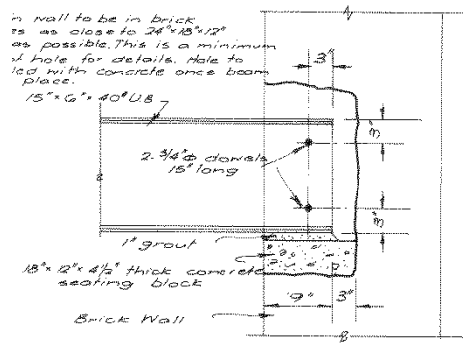 n wall to be in brick
es as close to 24"x18"x12"
as possible. This is a minimum
of hole for details. Hole to
led with concrete once beam
place.
3"
15" x 6" x 40# U.B
3"
2-3/4"φ dowels
15" long
3"
1" grout
18" x 12" x 4½" thick concrete
seating block
9" 3"
Brick Wall